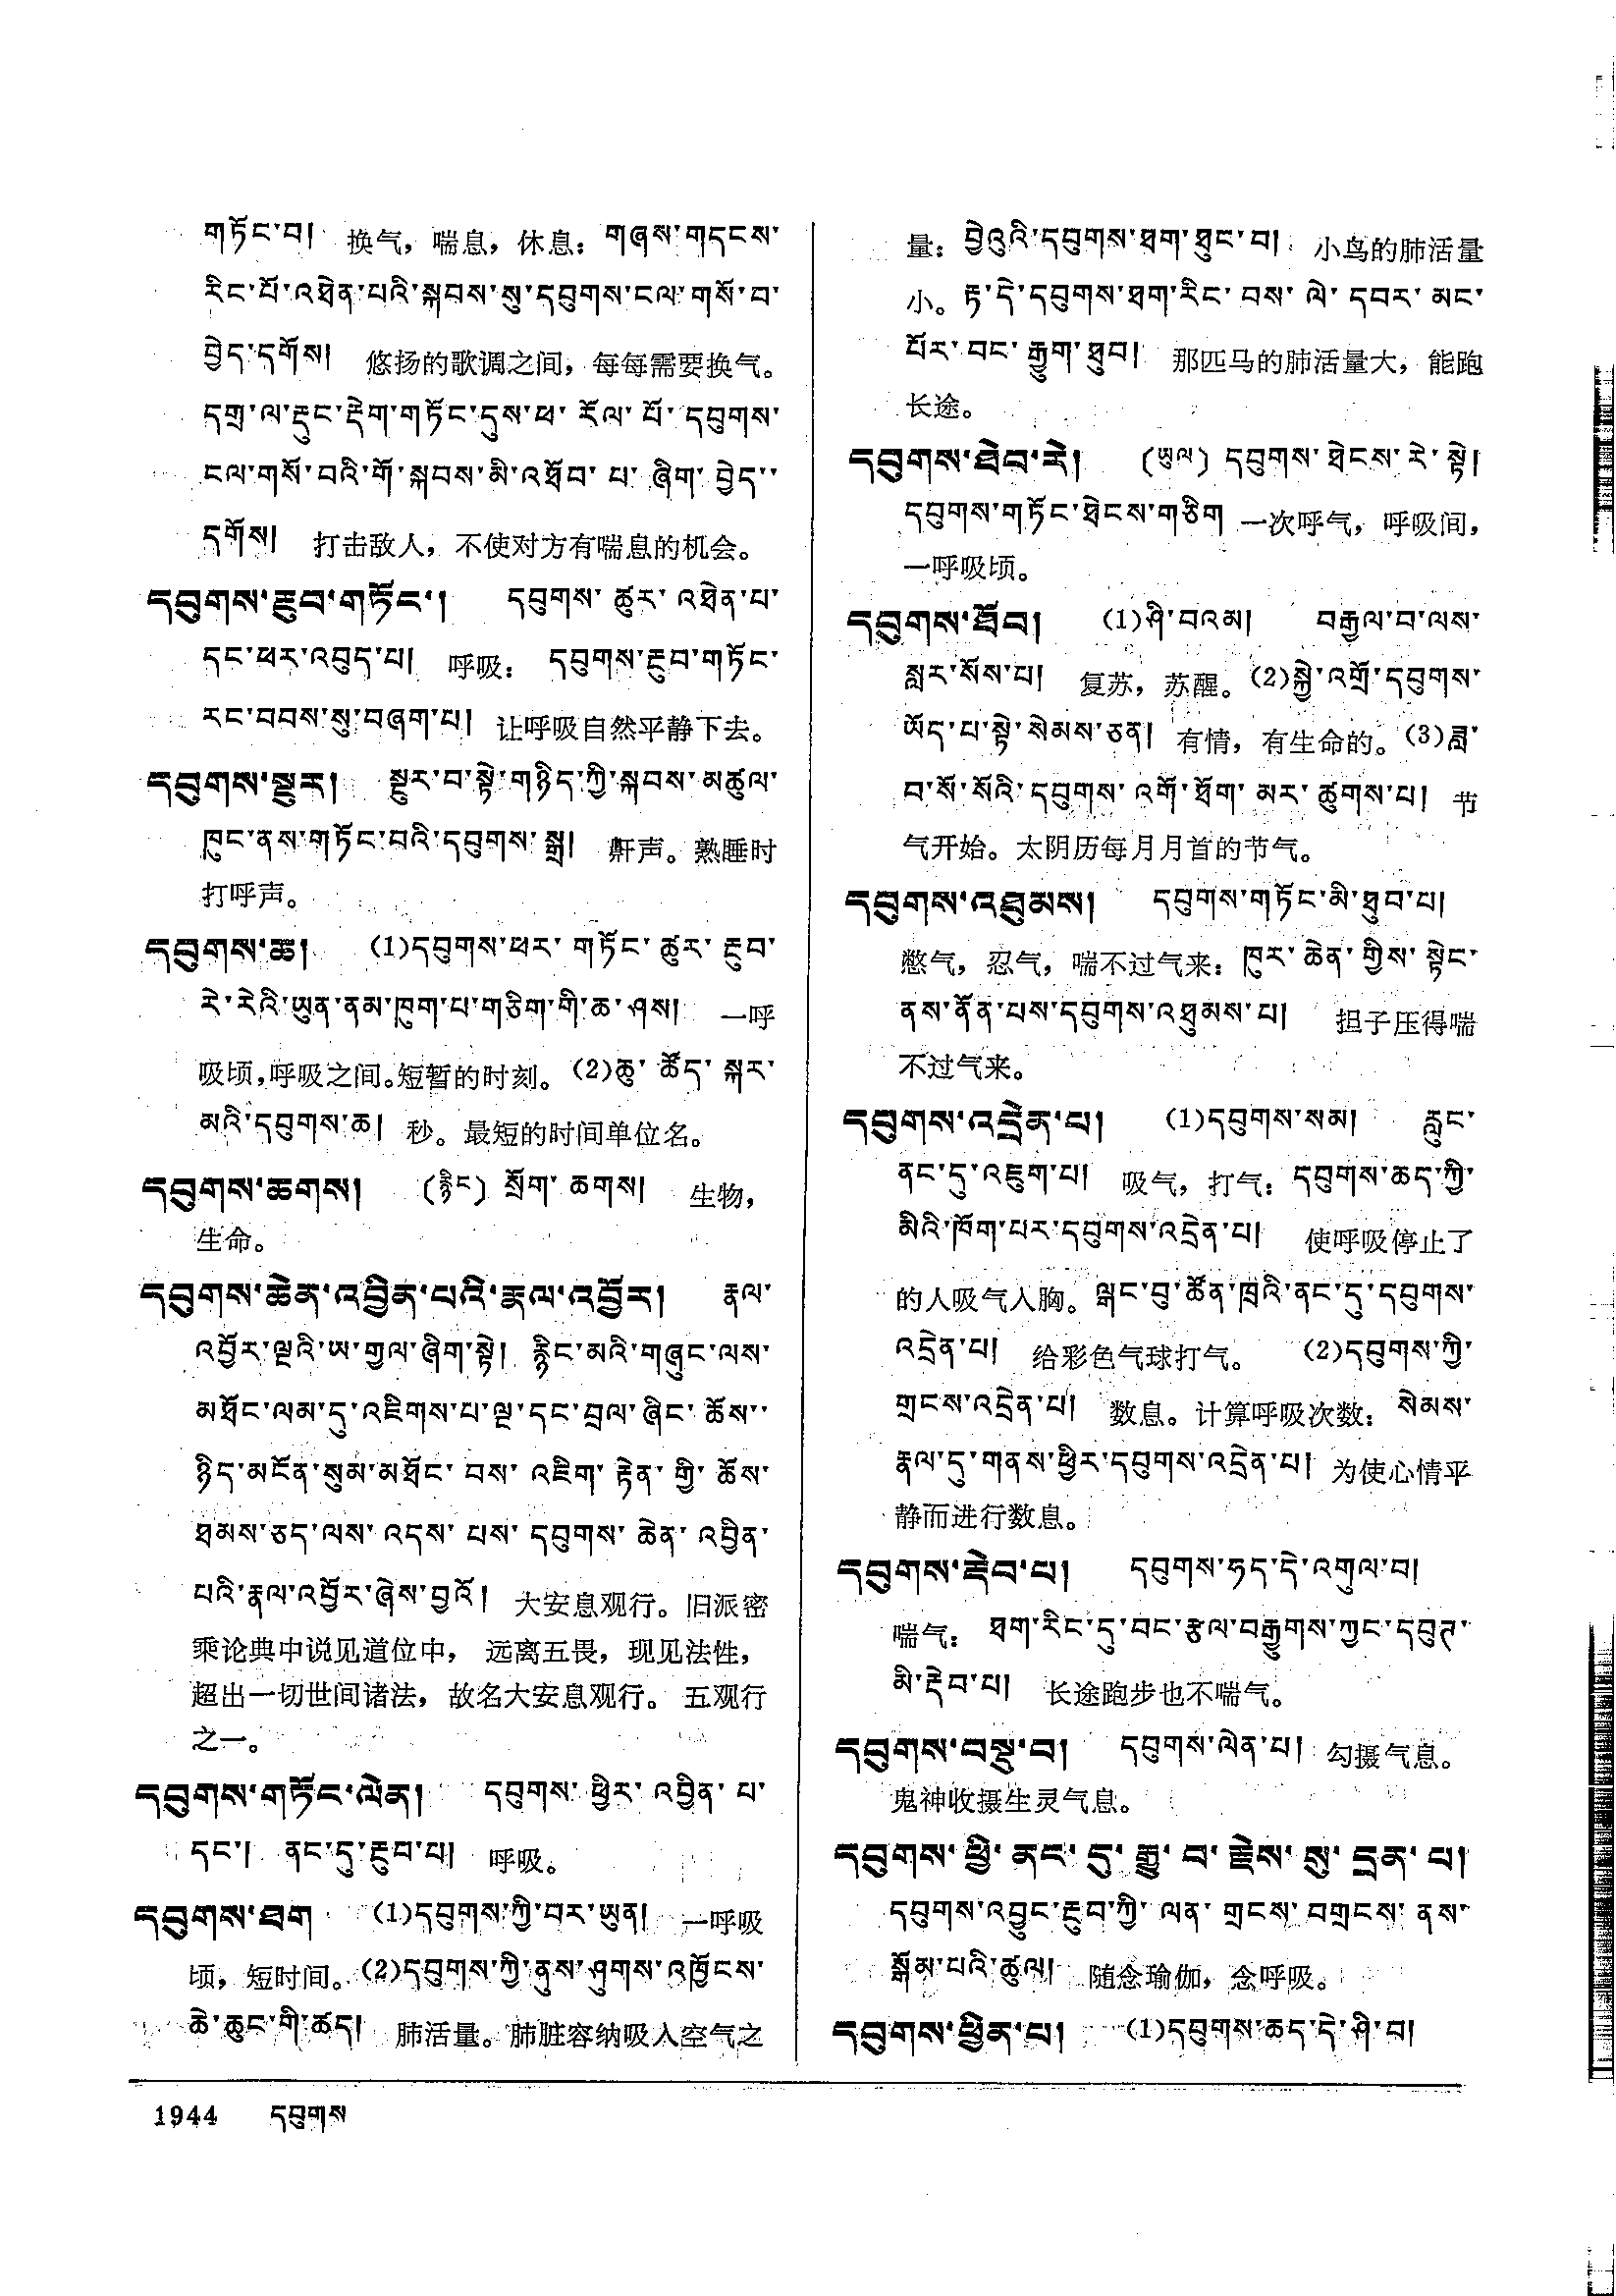 གཏོང་བ། 换气，喘息，休息：གཞས་གདངས་
རིང་པོ་འཐེན་པའི་སྐབས་སུ་དབུགས་ངལ་གསོ་བ་
བྱེད་དགོས། 悠扬的歌调之间，每每需要换气。
དགྲ་ལ་རྡུང་རྡེག་གཏོང་དུས་ཕ་རོལ་པོ་དབུགས་
ངལ་གསོ་བའི་གོ་སྐབས་མི་འཐོབ་པ་ཞིག་བྱེད་་
དགོས། 打击敌人，不使对方有喘息的机会。
དབུགས་རྔུབ་གཏོང་། དབུགས་ཚུར་འཐེན་པ་
དང་ཕར་འབུད་པ། 呼吸：དབུགས་རྔུབ་གཏོང་
རང་བབས་སུ་བཞག་པ། 让呼吸自然平静下去。
དབུགས་སྔུར། སྔུར་བ་སྟེ་གཉིད་ཀྱི་སྐབས་མཚུལ་
ཁུང་ནས་གཏོང་བའི་དབུགས་སྒྲ། 鼾声。熟睡时
打呼声。
དབུགས་ཆ། (1)དབུགས་ཕར་གཏོང་ཚུར་རྔུབ་
རེ་རེའི་ཡུན་ནམ་ཁུག་པ་གཅིག་གི་ཆ་ཤས། 一呼
吸顷，呼吸之间。短暂的时刻。(2)ཆུ་ཚོད་སྐར་
མའི་དབུགས་ཆ། 秒。最短的时间单位名。
དབུགས་ཆགས། (རྙིང) སྲོག་ཆགས། 生物，
生命。
དབུགས་ཆེན་འབྱིན་པའི་རྣལ་འབྱོར། རྣལ་
འབྱོར་ལྔའི་ཡ་གྱལ་ཞིག་སྟེ། རྙིང་མའི་གཞུང་ལས་
མཐོང་ལམ་དུ་འཇིགས་པ་ལྔ་དང་བྲལ་ཞིང་ཆོས་་
ཉིད་མངོན་སུམ་མཐོང་བས་འཇིག་རྟེན་གྱི་ཆོས་
ཐམས་ཅད་ལས་འདས་པས་དབུགས་ཆེན་འབྱིན་
པའི་རྣལ་འབྱོར་ཞེས་བྱའོ། 大安息观行。旧派密
乘论典中说见道位中，远离五畏，现见法性，
超出一切世间诸法，故名大安息观行。五观行
之一。
དབུགས་གཏོང་ལེན། དབུགས་ཕྱིར་འབྱིན་པ་
དང་། ནང་དུ་རྔུབ་པ། 呼吸。
དབུགས་ཐག (1)དབུགས་ཀྱི་བར་ཡུན། 一呼吸
顷，短时间。(2)དབུགས་ཀྱི་ནུས་ཤུགས་འཁྱོངས་
ཆེ་ཆུང་གི་ཚད། 肺活量。肺脏容纳吸入空气之
量：བྱེའུའི་དབུགས་ཐག་ཐུང་བ། 小鸟的肺活量
小。རྟ་དེ་དབུགས་ཐག་རིང་བས་ལེ་དབར་མང་
པོར་བང་རྒྱུག་ཐུབ། 那匹马的肺活量大，能跑
长途。
དབུགས་ཐེབ་རེ། (ཡུལ) དབུགས་ཐེངས་རེ་སྟེ།
དབུགས་གཏོང་ཐེངས་གཅིག 一次呼气，呼吸间，
一呼吸顷。
དབུགས་ཐོབ། (1)ཤི་བའམ། བརྒྱལ་བ་ལས་
སླར་སོས་པ། 复苏，苏醒。(2)སྐྱེ་འགྲོ་དབུགས་
ཡོད་པ་སྟེ་སེམས་ཅན། 有情，有生命的。(3)ཟླ་
བ་སོ་སོའི་དབུགས་འགོ་ཐོག་མར་ཚུགས་པ། 节
气开始。太阴历每月月首的节气。
དབུགས་འཐུམས། དབུགས་གཏོང་མི་ཐུབ་པ།
憋气，忍气，喘不过气来：ཁུར་ཆེན་གྱིས་སྟེང་
ནས་ནོན་པས་དབུགས་འཐུམས་པ། 担子压得喘
不过气来。
དབུགས་འདྲེན་པ། (1)དབུགས་སམ། རླུང་
ནང་དུ་འཇུག་པ། 吸气，打气：དབུགས་ཆད་ཀྱི་
མིའི་ཁོག་པར་དབུགས་འདྲེན་པ། 使呼吸停止了
的人吸气入胸。ལྒང་བུ་ཚོན་ཁྲའི་ནང་དུ་དབུགས་
འདྲེན་པ། 给彩色气球打气。 (2)དབུགས་ཀྱི་
གྲངས་འདྲེན་པ། 数息。计算呼吸次数：སེམས་
རྣལ་དུ་གནས་ཕྱིར་དབུགས་འདྲེན་པ། 为使心情平
静而进行数息。
དབུགས་རྡེབ་པ། དབུགས་ཧད་དེ་འགུལ་བ།
喘气：ཐག་རིང་དུ་བང་རྩལ་བརྒྱུགས་ཀྱང་དབུཊ་
མི་རྡེབ་པ། 长途跑步也不喘气。
དབུགས་བསྡུ་བ། དབུགས་ལེན་པ། 勾摄气息。
鬼神收摄生灵气息。
དབུགས་ཕྱི་ནང་དུ་རྒྱུ་བ་རྗེས་སུ་དྲན་པ།
དབུགས་འབྱུང་རྔུབ་ཀྱི་ལན་གྲངས་བགྲངས་ནས་
སྒོམ་པའི་ཚུལ། 随念瑜伽，念呼吸。
དབུགས་ཕྱིན་པ། (1)དབུགས་ཆད་དེ་ཤི་བ།
1944 དབུགས